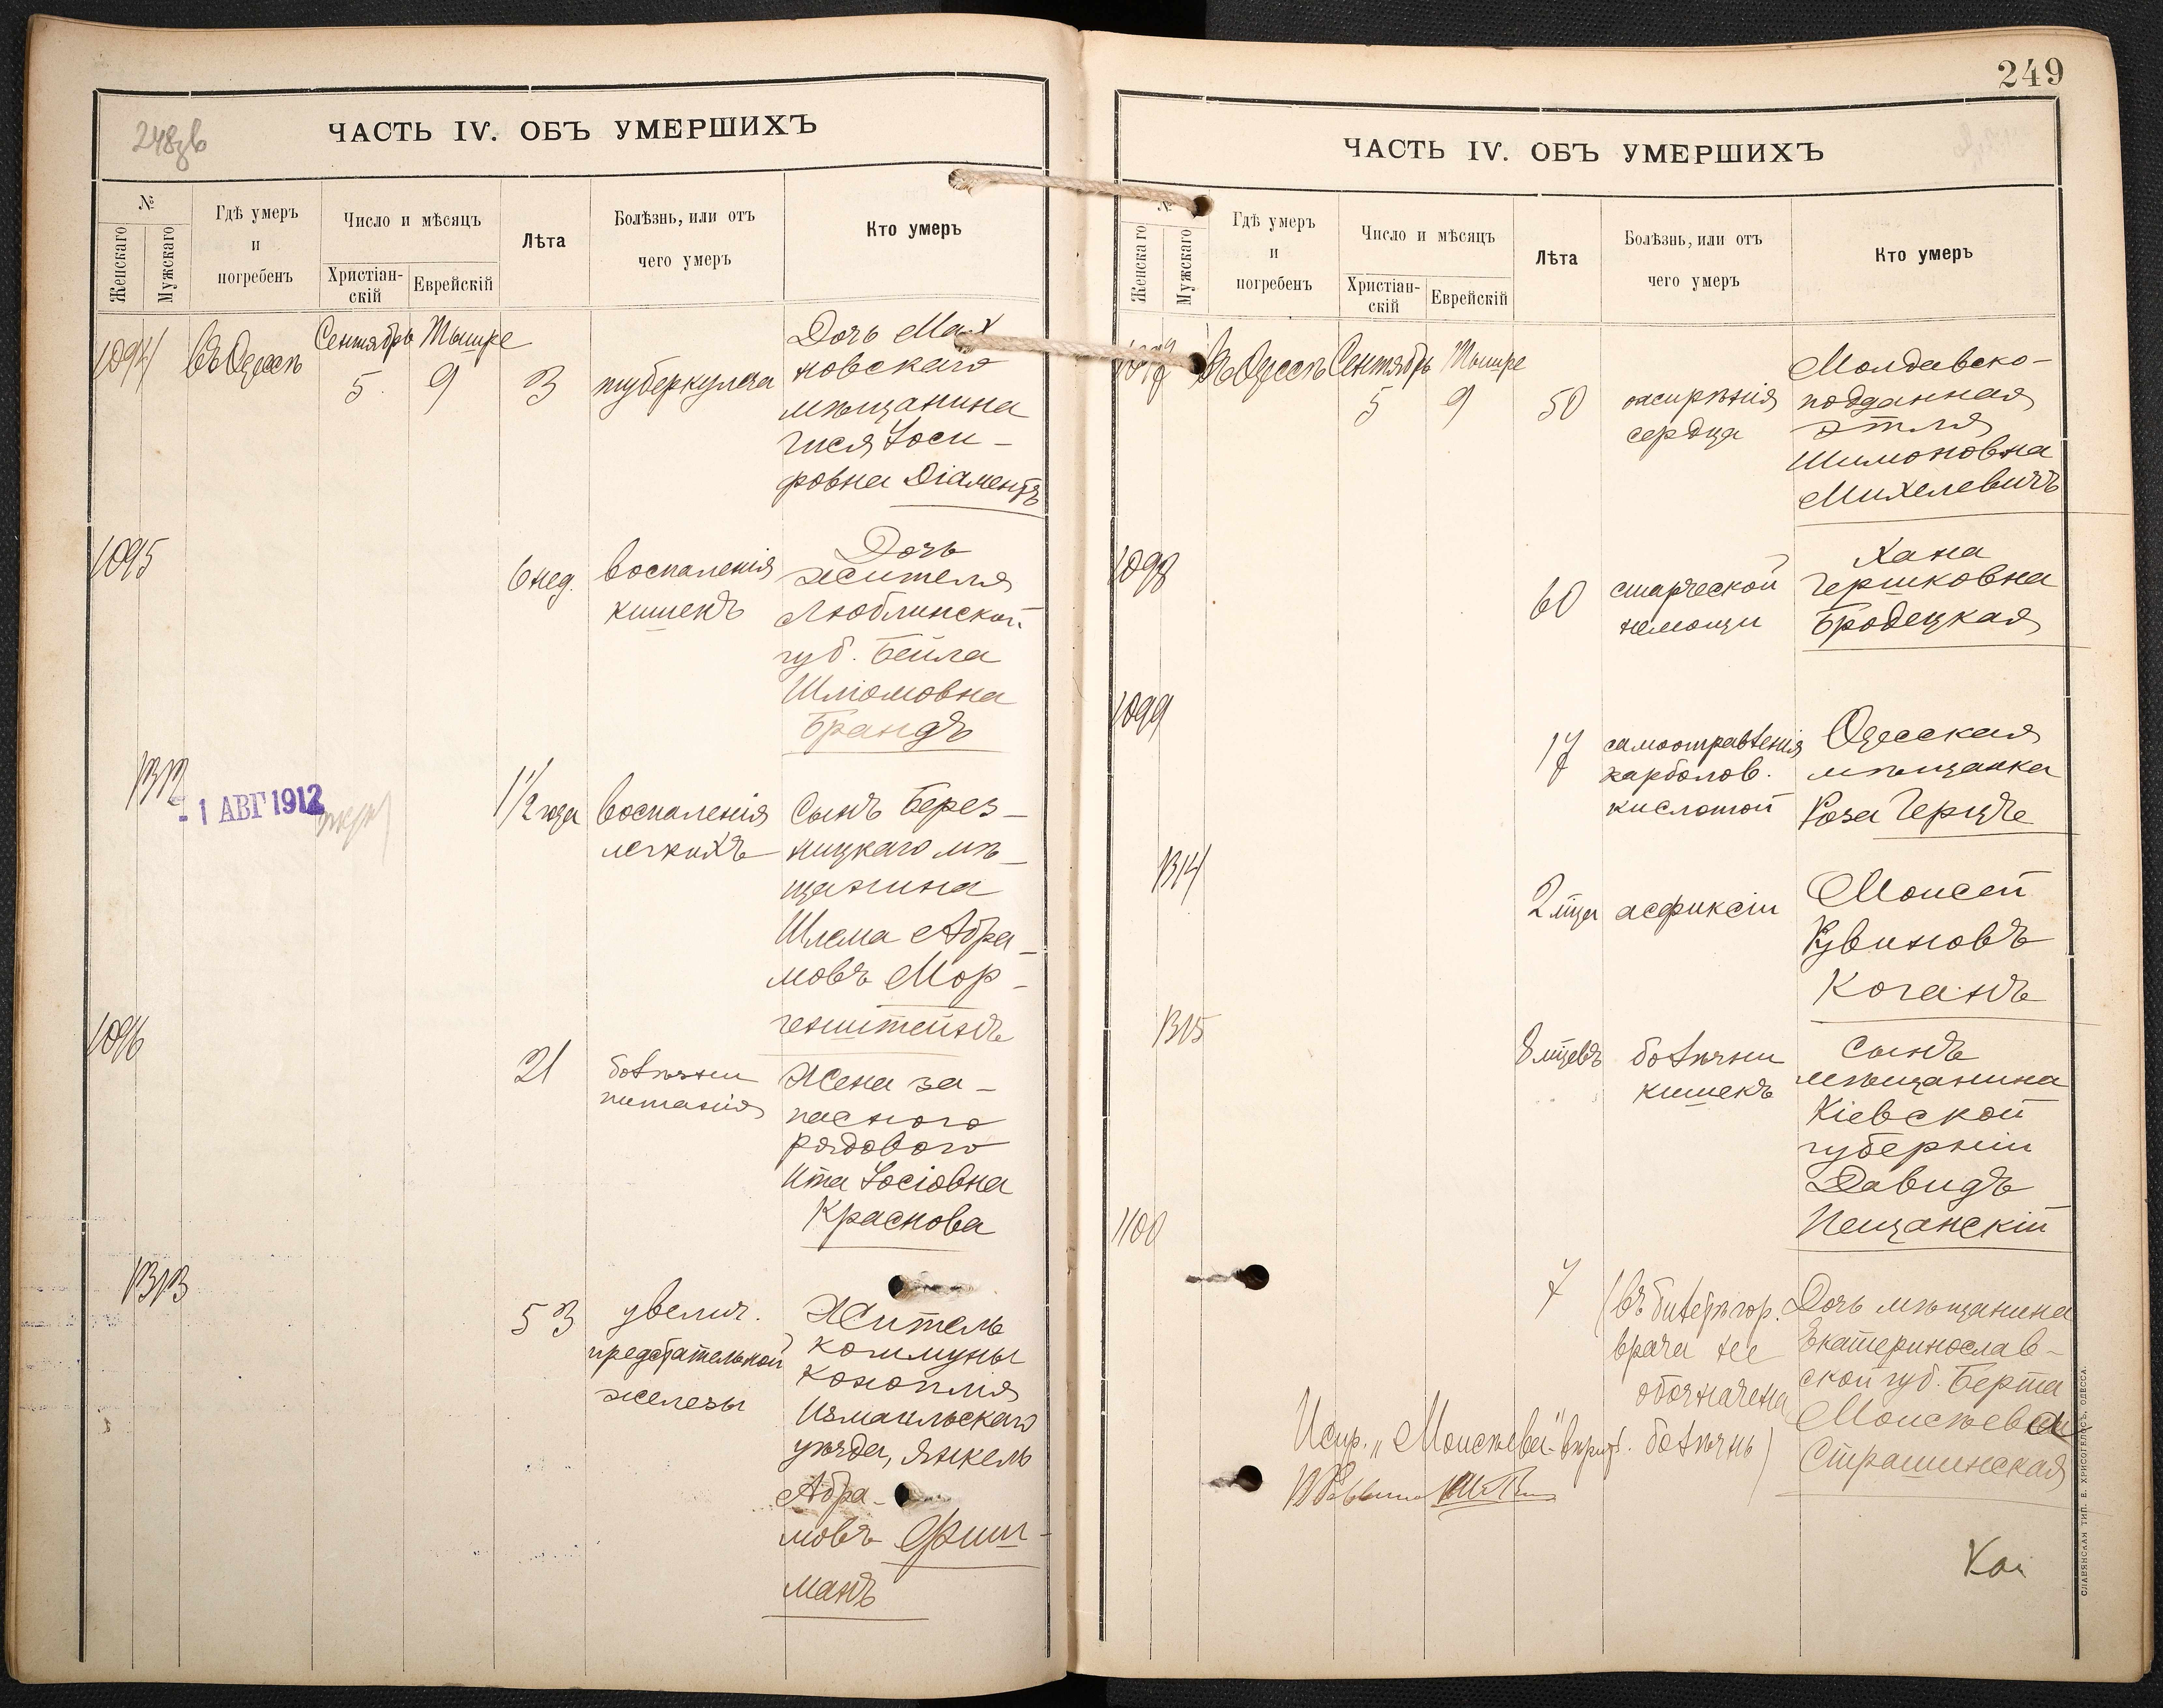 248об
ЧАСТЬ IV. ОБЪ УМЕРШИХЪ
№
Женскаго
Мужскаго
Гдѣ умеръ
и
погребенъ
Число и мѣсяцъ
Христіан-
скій
Еврейскій
Лѣта
Болѣзнь, или отъ
чего умеръ
Кто умеръ
1094
Въ Одессѣ
Сентябрь
5
Тышре
9
3
туберкулеза
Дочь Мах
новскаго
мѣщанина
Гися Іоси-
фовна Діаментъ
1095
6 нед.
воспаленія
кишекъ
Дочь
жителя
Люблинской
губ. Бейла
Шліомовна
Брандъ
1312
- 1 АВГ 1912
1 1/2 года
воспаленія
легкихъ
Сынъ Берез-
ницкаго мѣ-
щанина
Шлема Абра-
мовъ Мор-
генштейнъ
1096
21
болѣзни
питанія
Жена за-
паснаго
рядового
Ита Іосіовна
Краснова
1313
53
увелич.
предстательной
железы
Житель
коммуны
Конопля
Измаильскаго
уѣзда, Янкель
Абра-
мовъ Фиш-
манъ
249
ЧАСТЬ IV. ОБЪ УМЕРШИХЪ
№
Женскаго
Мужскаго
Гдѣ умеръ
и
погребенъ
Число и мѣсяцъ
Христіан-
скій
Еврейскій
Лѣта
Болѣзнь, или отъ
чего умеръ
Кто умеръ
1097
Въ Одессѣ
Сентябрь
5
Тышре
9
50
ожирѣнія
сердца
Молдавско-
подданная
Этля
Шимоновна
Михелевичъ
1098
60
старческой
немощи
Хана
Гершковна
Бродецкая
1099
17
самоотравленія
карболов.
кислотой
Одесская
мѣщанка
Роза Герцъ
1314
2 мѣца
асфиксіи
Моисей
Коганъ
1315
8 мѣцевъ
болѣзни
кишекъ
Сынъ
мѣщанина
Кіевской
губерніи
Давидъ
Пещанскій
1100
7
(въ билетѣ гор.
врача не
обозначена
болѣзнь)
Дочь мѣщанина
Екатеринослав-
ской губ. Берта
Моисѣевна
Страшинская
Испр. „Моисѣева"
СЛАВЯНСКАЯ ТИП. Е. ХРИСОГЕЛОСЪ, ОДЕССА.